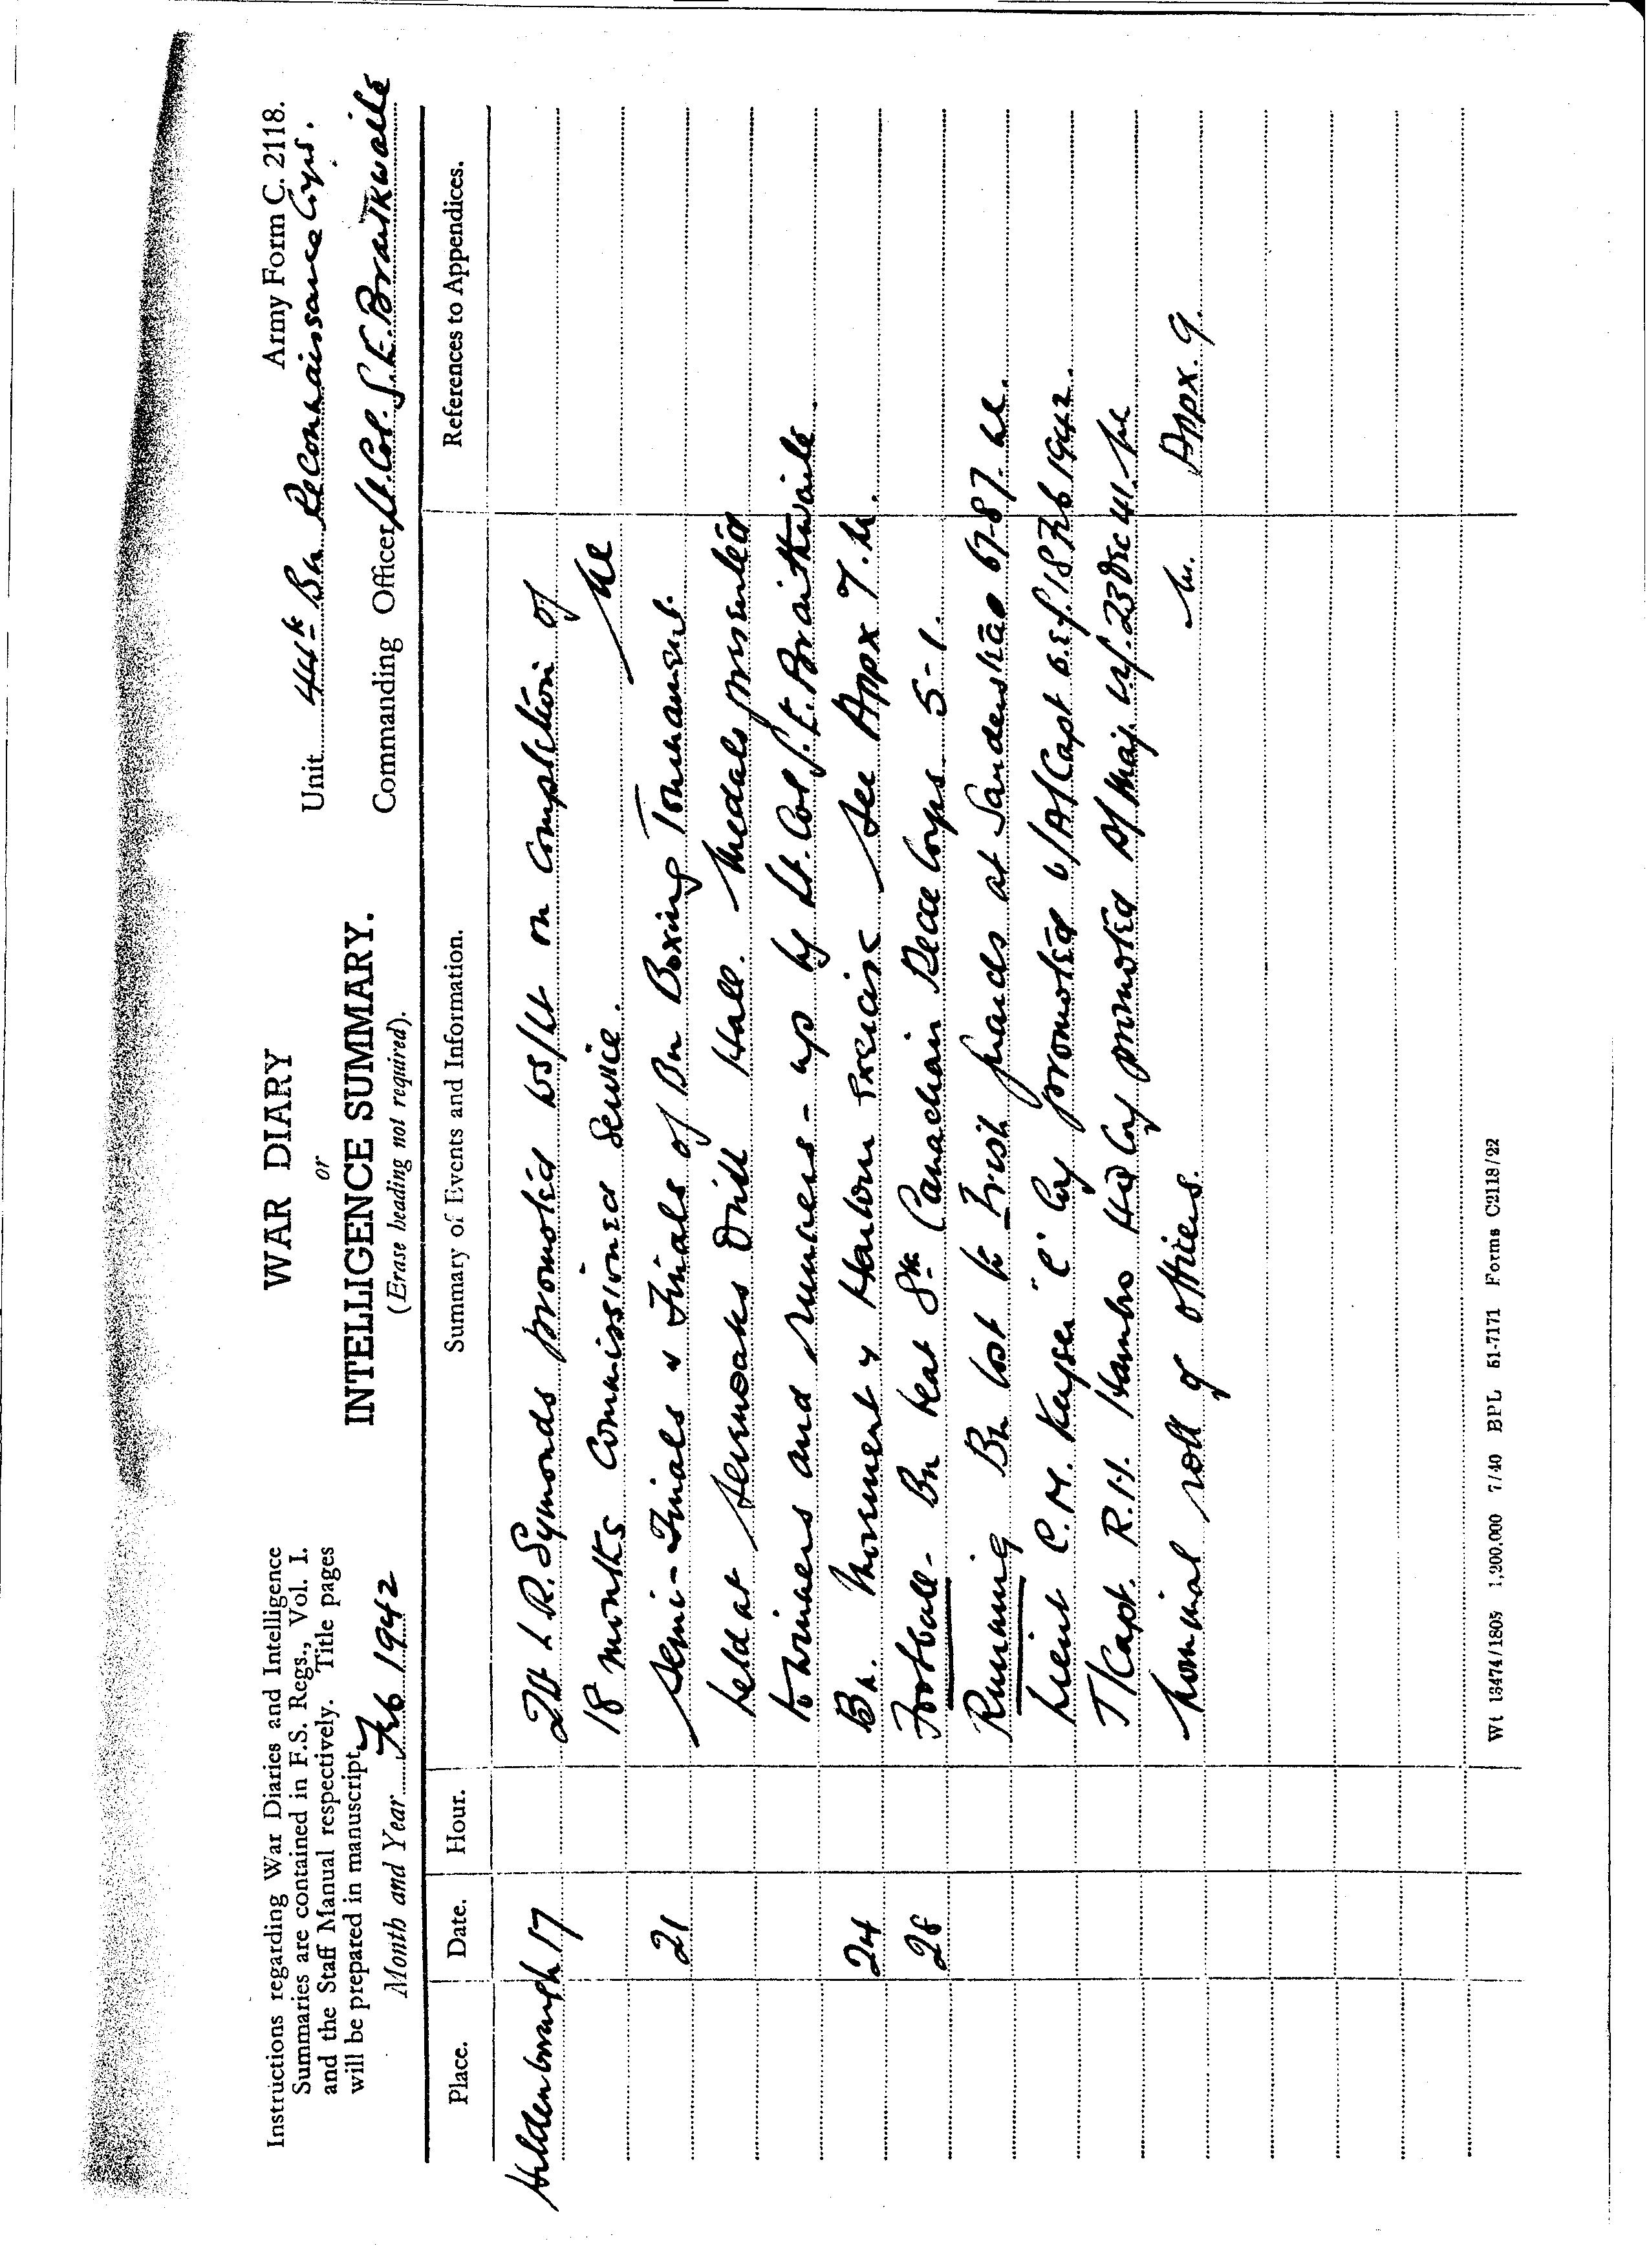 Army Form C. 2118.
Instructions regarding War Diaries and Intelligence
Summaries are contained in F.S. Regs., Vol. I.
and the Staff Manual respectively. Title pages
will be prepared in manuscript.
Month and Year Feb 1942
WAR DIARY
or
INTELLIGENCE SUMMARY.
(Erase heading not required).
Unit 44th Bn Reconnaissance Corps.
Commanding Officer Lt. Col. J.E. Braithwaite
Place. Date. Hour. Summary of Events and Information. References to Appendices.
Hildenborough 17 2Lt L.R. Symonds promoted WS/Lt on completion of
18 months Commissioned Service.
21 Semi-Finals & Finals of Bn Boxing Tournament.
held at Sevenoaks Drill Hall. Medals presented
to winners and runners-up by Lt. Col J.E. Braithwaite.
24 Bn. Movement & Harbour Exercise See Appx 7.
28 Football - Bn beat 8th Canadian Recce Corps 5-1.
Running Bn lost to Irish Guards at Sanderstead 67-87.
Lieut C.M. Keyser "C" Coy promoted U/A/Capt w.e.f. 18 Feb 1942.
T/Capt. R.H. Hambro HQ Coy promoted A/Maj. w.e.f. 23 Dec 41.
Nominal roll of officers. Appx. 9.
Wt 13474/1805 1,200,000 7/40 BPL 51-7171 Forms C2118/22